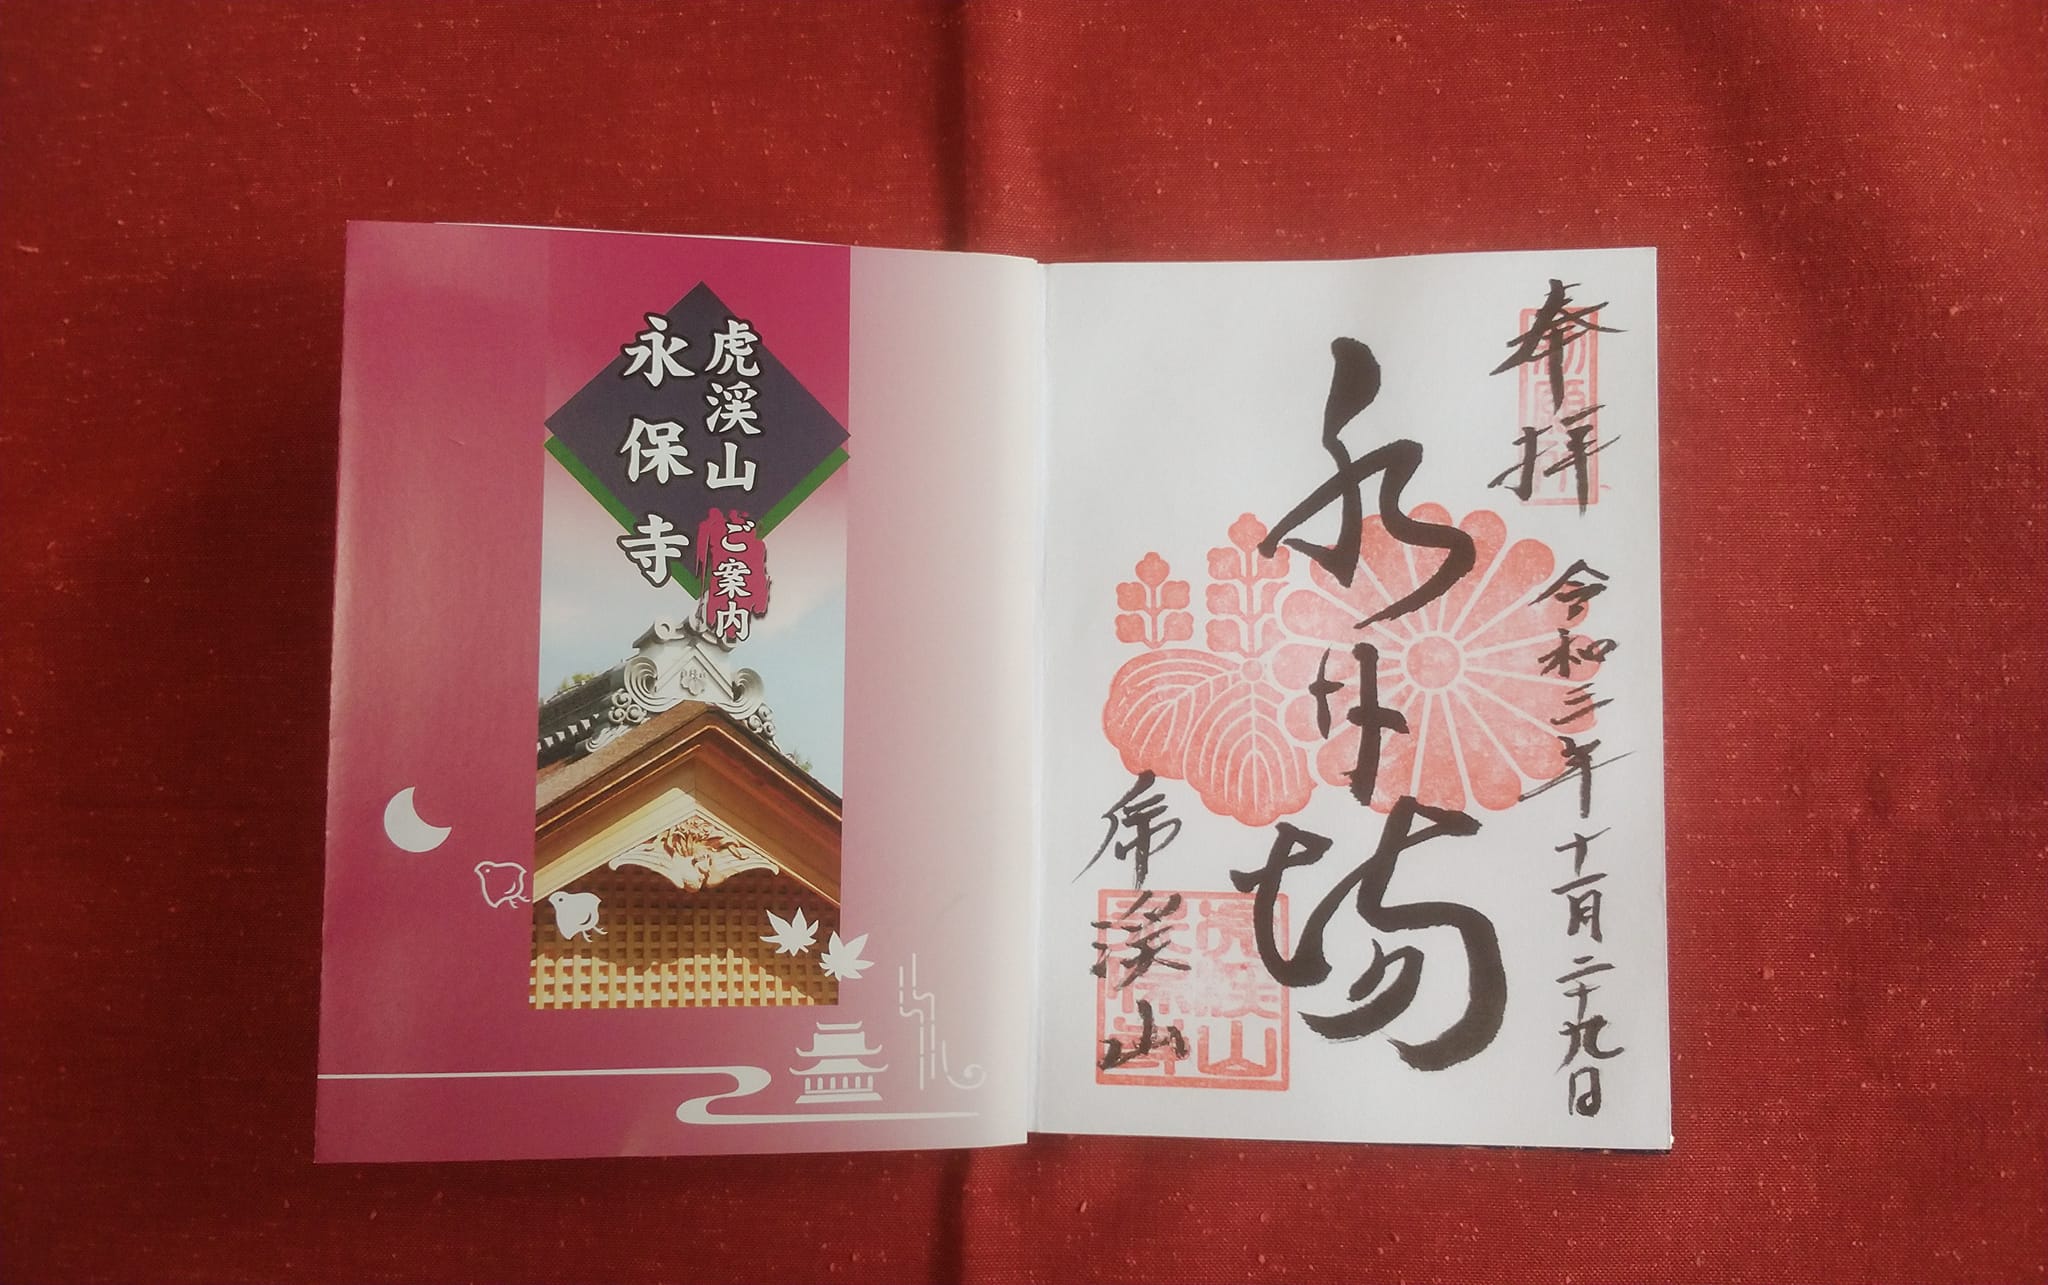 虎渓山 ご案内
永保寺
奉拝
令和三年十一月二十九日
水月場
虎溪山
虎渓山
永保寺